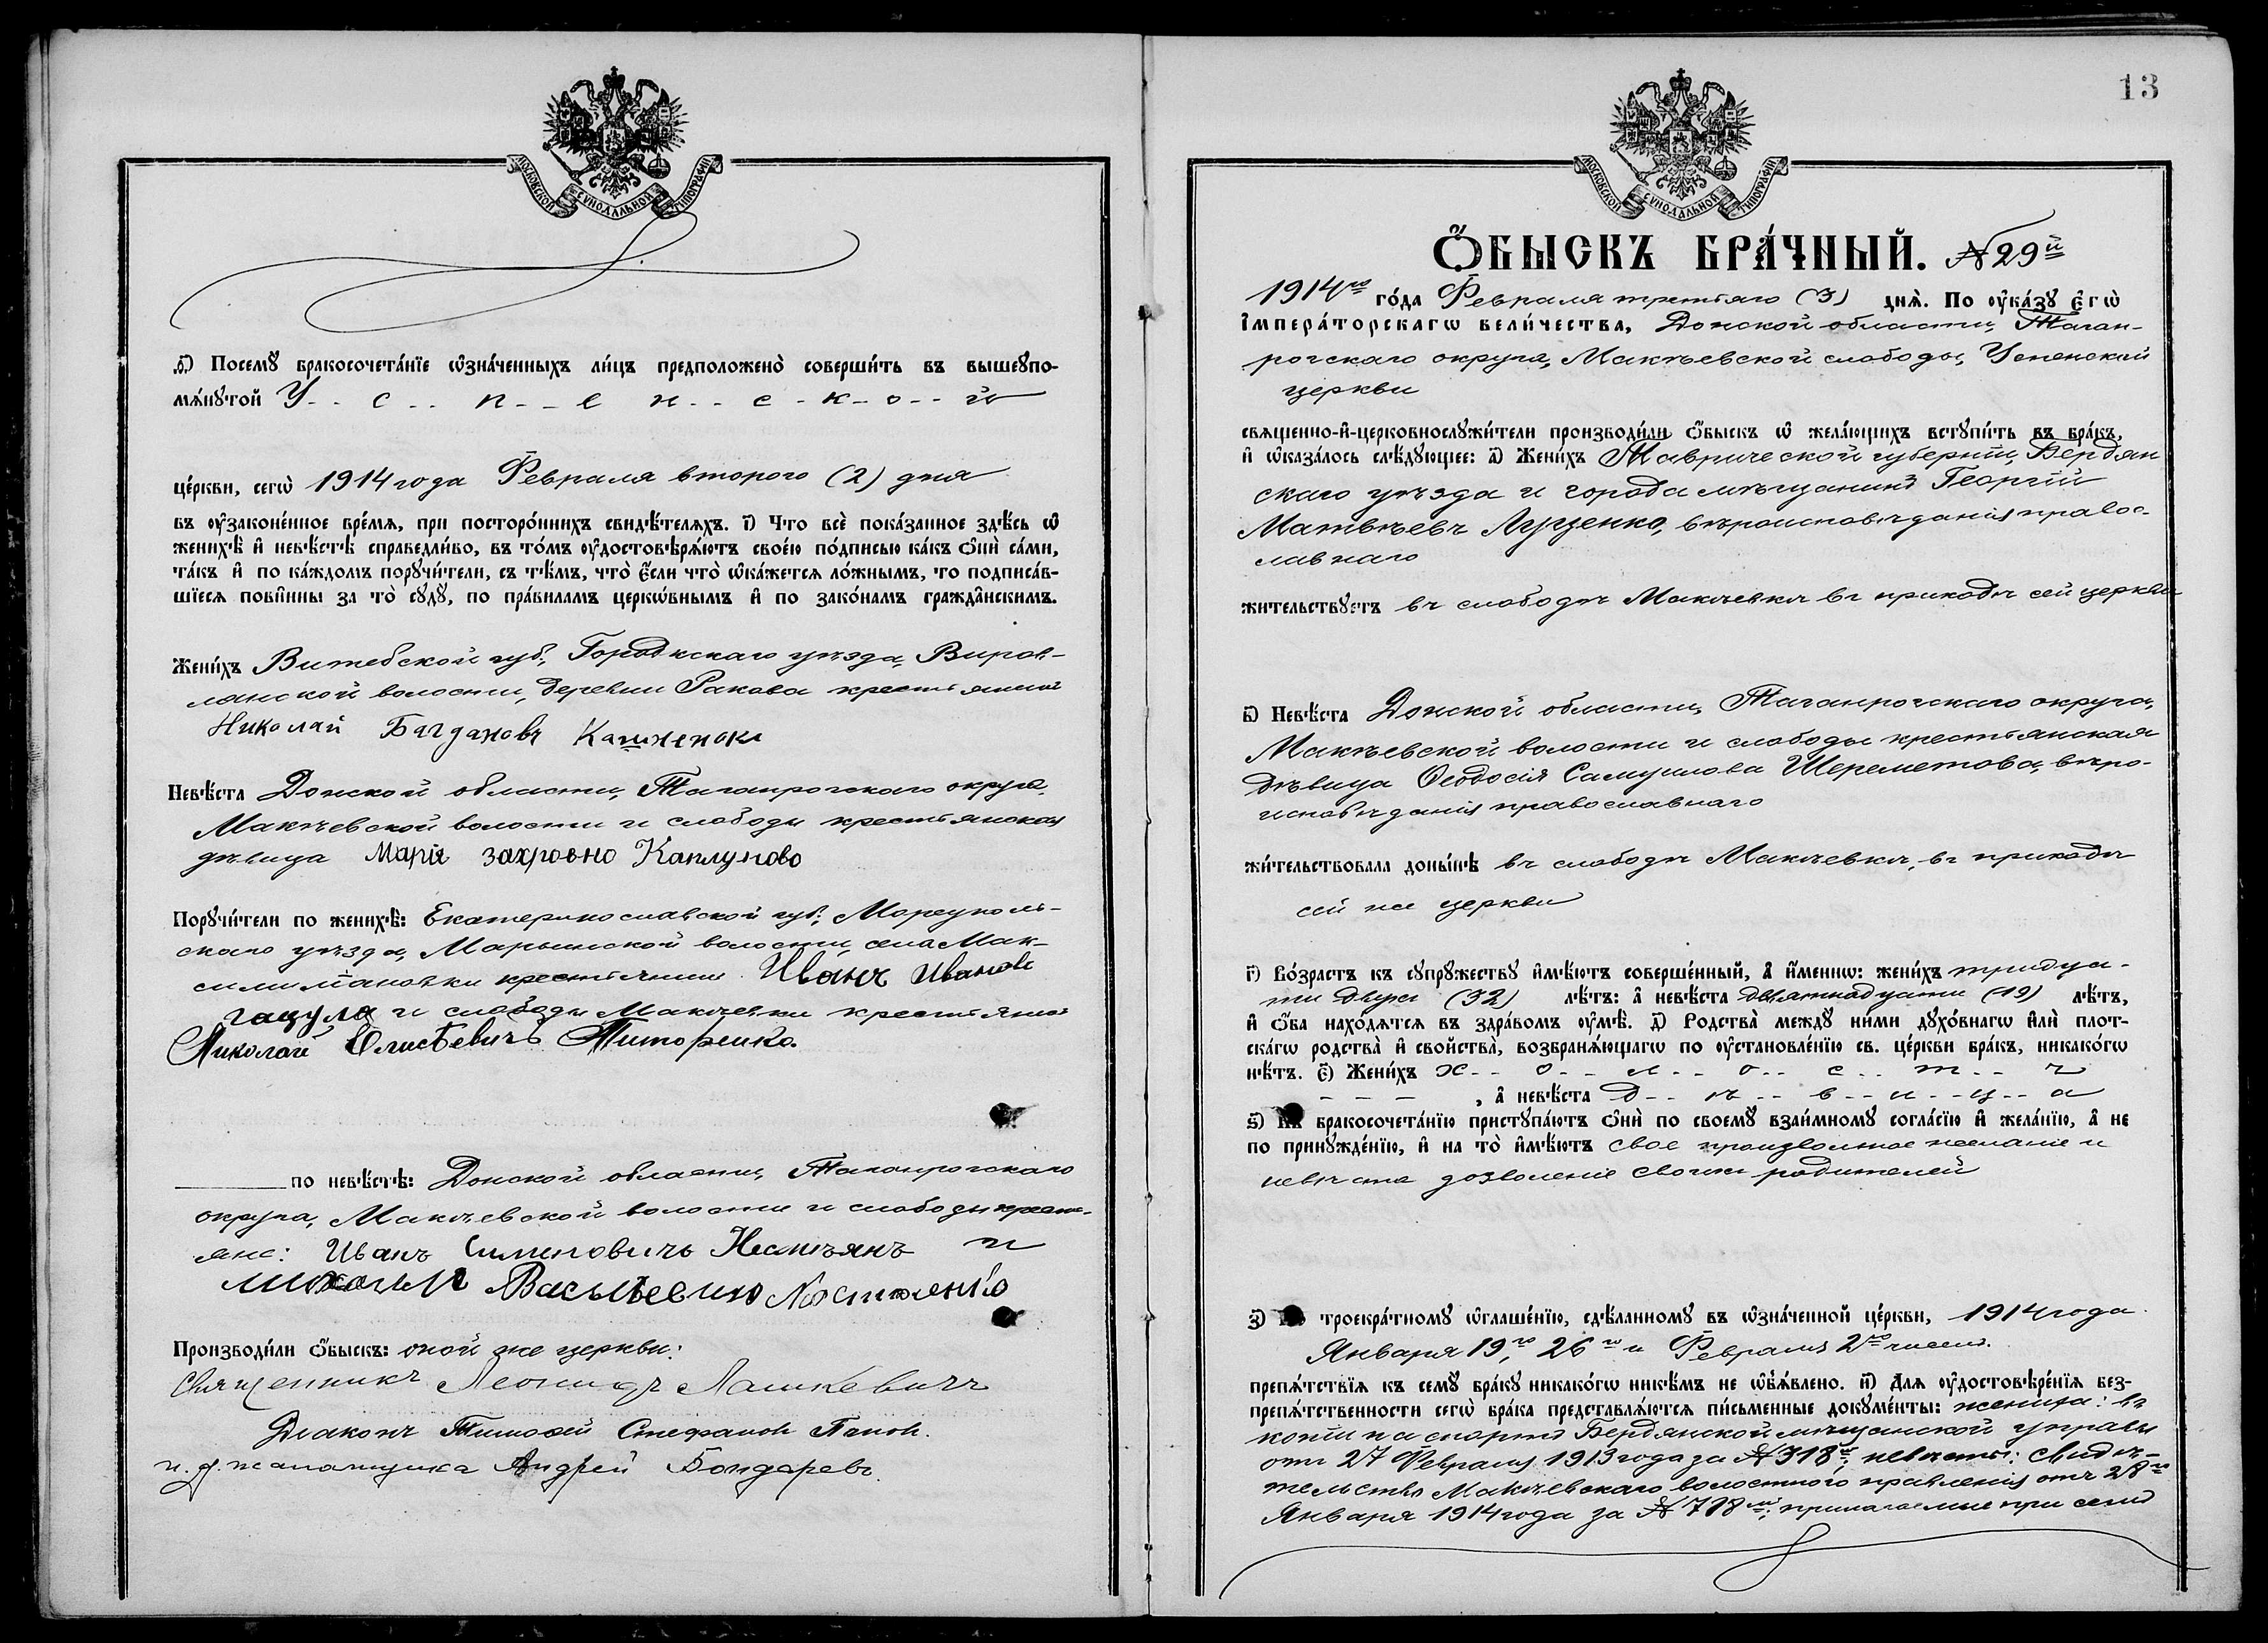 МОСКОВСКОЙ СУНОДАЛЬНОЙ ТИПОГРАФІИ
ѳ҃) Посемꙋ̀ бракосочета́нїе ѡ҆зна́ченныхъ ли́цъ предположено̀ соверши́ть въ вышеꙋпо-
мѧ́нꙋтой У - - с - - п - - е н - - с - к - о - - й
це́ркви, сегѡ̀ 1914 года Февраля второго (2) дня
въ ᲂу҆законе́нное вре́мѧ, при посторо́ннихъ свидѣ́телѧхъ. і҃) Что всѐ пока́занное здѣ́сь ѡ҆
женихѣ̀ и҆ невѣ́стѣ справедли́во, въ то́мъ ᲂу҆достовѣрѧ́ютъ свое́ю по́дписью ка́къ ѻ҆нѝ са́ми,
та́къ и҆ по ка́ждомъ порꙋчи́тели, съ тѣ́мъ, что̀ є҆́сли что̀ ѡ҆ка́жетсѧ ло́жнымъ, то подписа́в-
шїесѧ пови́нны за то̀ сꙋдꙋ̀, по пра́виламъ церко́внымъ и҆ по зако́намъ гражда́нскимъ.
Жени́хъ Витебской губ., Городкскаго уѣзда, Виров-
лянской волости, деревни Ракова крестьянинъ
Николай Багдановъ
Невѣ́ста Донской области, Таганрогскаго округа,
Макѣевской волости и слободы крестьянская
дѣвица Марія захровно Каплуново
Порꙋчи́тели по женихѣ̀: Екатеринославской губ., Мореуполь-
скаго уѣзда, Марьинской волости, села Мак-
симиліановки крестьянинъ Иванъ Ивановъ
гацула и слободы Макѣевки крестьянинъ
Николай Елисѣевичъ Титоренко.
по невѣ́стѣ: Донской области, Таганрогскаго
округа, Макѣевской волости и слободы кресть-
яне: Иванъ Симиновичь Несмѣянъ и
михаилъ Васильевичь
Производи́ли ѻ҆́быскъ: оной же церкви:
Священникъ Леонидъ Лашкевичъ
Діаконъ Тимофей Стефановъ Поповъ.
и. д. псаломщика Андрей Бондаревъ.
13
МОСКОВСКОЙ СУНОДАЛЬНОЙ ТИПОГРАФІИ
Ѻ҆́БЫСКЪ БРА́ЧНЫЙ. № 29й
1914го го́да Февраля третьяго (3) днѧ̀. По ᲂу҆ка́зꙋ є҆гѡ̀
і҆мпера́торскагѡ вели́чества, Донской области, Таган-
рогскаго округа, Макѣевской слободы, Успенской
церкви
свѧщенно-и҆-церковнослꙋжи́тели производи́ли ѻ҆́быскъ ѡ҆ жела́ющихъ встꙋпи́ть въ бра́къ,
и҆ ѡ҆каза́лось слѣ́дꙋющее: а҃) Жени́хъ Таврической губерніи, Бердян
скаго уѣзда и города мѣщанинъ Георгій
Матвѣевъ Луценко, вѣроисповѣданія правос-
лавнаго
жи́тельствꙋетъ въ слободѣ Макѣевкѣ въ приходѣ сей церкви
в҃) Невѣ́ста Донской области, Таганрогскаго округа,
Макѣевской волости и слободы крестьянская
дѣвица Ѳеодосія Самуилова Шереметова, вѣро-
исповѣданія православнаго
жи́тельствовала доны́нѣ въ слободѣ Макѣевкѣ, въ приходѣ
сей же церкви
г҃) Во́зрастъ къ сꙋпрꙋ́жествꙋ и҆мѣ́ютъ соверше́нный, а҆ и҆́меннѡ: жени́хъ тридца-
ти двухъ (32) лѣ́тъ: а҆ невѣ́ста девятнадцати (19) лѣ́тъ,
и҆ ѻ҆́ба нахо́дѧтсѧ въ здра́вомъ ᲂу҆мѣ̀. д҃) Родства̀ междꙋ̀ ни́ми дꙋхо́внагѡ и҆лѝ плот-
ска́гѡ родства̀ и҆ сво́йства, возбранѧ́ющагѡ по ᲂу҆становле́нїю св. це́ркви бра́къ, никако́гѡ
нѣ́тъ. є҃) Жени́хъ х - - о - - л - - о - - с - - т - - ъ
- - - , а҆ невѣ́ста д - - ѣ - - в - - и - - ц - - а
ѕ҃) Къ бракосочета́нїю пристꙋпа́ютъ ѻ҆нѝ по своемꙋ̀ взаи́мномꙋ согла́сїю и҆ жела́нїю, а҆ не
по принꙋжде́нїю, и҆ на то̀ и҆мѣ́ютъ свое произвольное желаніе и
невѣста дозволеніе своихъ родителей
з҃) По троекра́тномꙋ ѡ҆глаше́нїю, сдѣ́ланномꙋ въ ѡ҆зна́ченной це́ркви, 1914 года
Января 19го, 26го и Февраля 2го чиселъ.
препѧ́тствїѧ къ семꙋ̀ бра́кꙋ никако́гѡ никѣ́мъ не ѡ҆бъѧ́влено. и҃) Длѧ ᲂу҆достовѣре́нїѧ без-
препѧ́тственности сегѡ̀ бра́ка представлѧ́ютсѧ пи́сьменные докꙋме́нты: жениха: въ
копіи паспортъ Бердянской мѣщанской управы
отъ 27 Февраля 1913 года за № 318; невѣсты: свидѣ-
тельство Макѣевскаго волостного правленія отъ 28го
Января 1914 года за № 718; прилагаемые при семъ